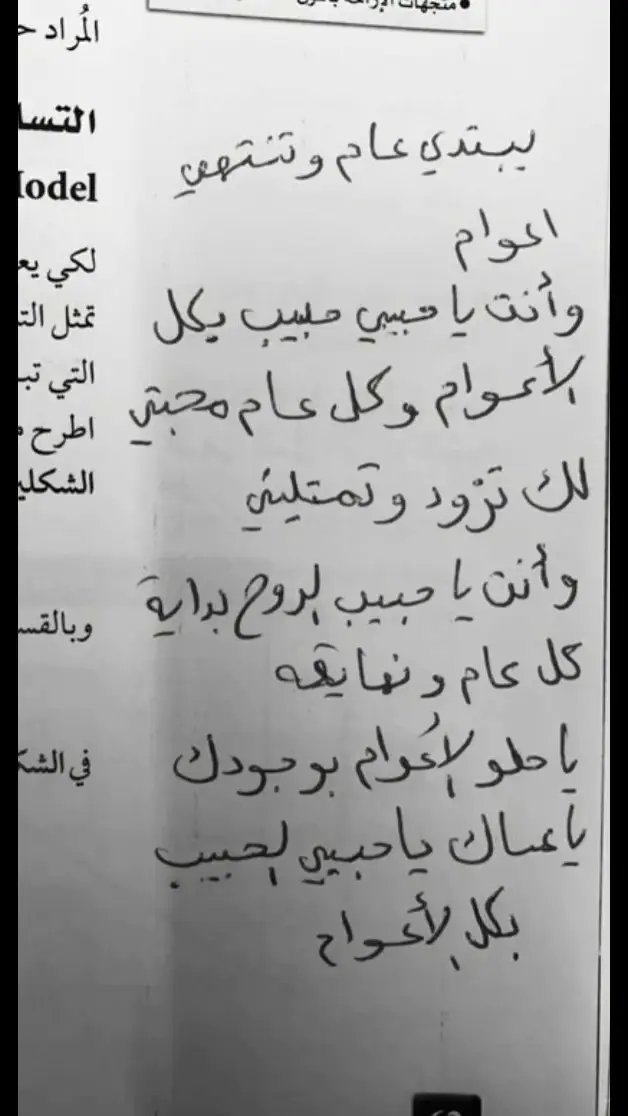 • متجهات الإزاحة
المُراد
التسا
lodel
يبتدي عام وتنتهي
اعوام
لكي يع
وأنت يا حبيبي حبيب بكل
تمثل الت
الأعوام وكل عام محبتي
التي تب
اطرح
لك تزود وتمتليني
الشكلي
وأنت يا حبيب الروح بداية
وبالقس
كل عام ونهايته
يا حلو الأعوام بوجودك
في الشك
يا عساك يا حبيبي الحبيب
بكل الأعوام